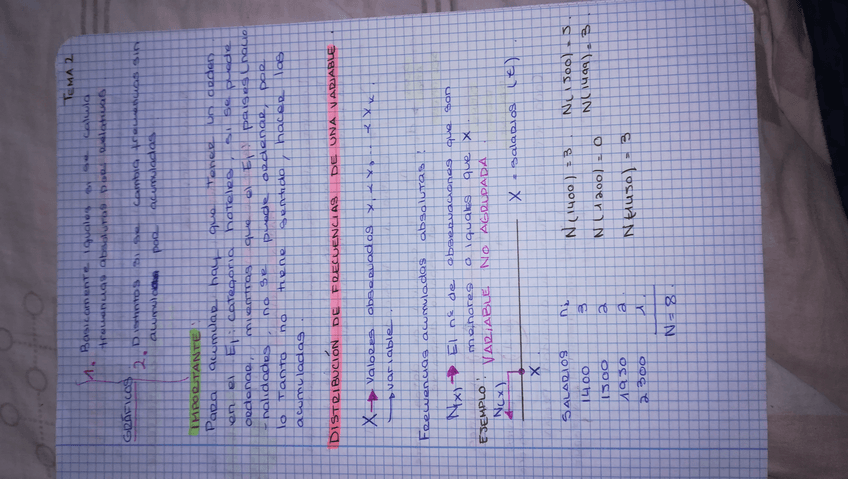 TEMA 2
GRÁFICOS
1. Basicamente iguales si se cambia
frecuencias absolutas por relativas.
2. Distintos si se cambia frecuencias sin
acumular por acumuladas
IMPORTANTE:
Para acumular hay que tener un orden
en el Ej: categoria hoteles, si se puede
ordenar, mientras que el Ej: paises (nacio
-nalidades, no se puede ordenar, por
lo tanto no tiene sentido, hacer las
acumuladas.
DISTRIBUCIÓN DE FRECUENCIAS DE UNA VARIABLE.
X → Valores observados x1 < x2 ... < xk
→ variable.
Frecuencias acumuladas absolutas:
N(x) → El nº de observaciones que son
menores o iguales que X.
EJEMPLO: VARIABLE NO AGRUPADA.
N(x)
X
X = Salarios (€).
SALARIOS ni
1400 3
1500 2
1950 2
2300 1
N = 8.
N(1400) = 3 N(1500) = 5.
N(1200) = 0 N(1499) = 3
N(1450) = 3